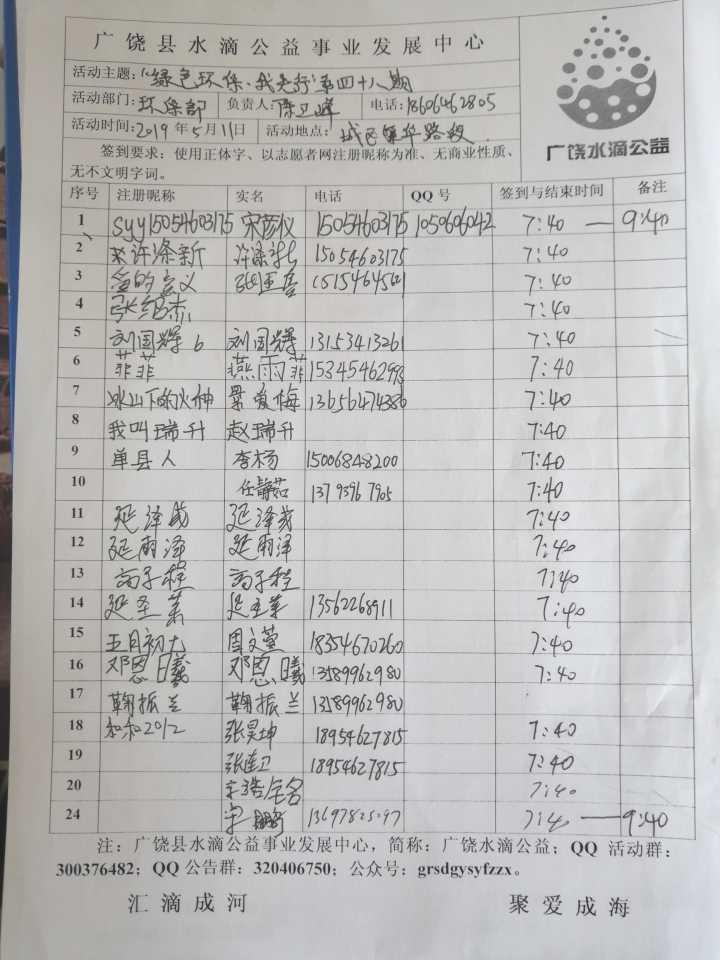 广饶县水滴公益事业发展中心
活动主题:“绿色环保·我先行”第四十八期
活动部门:环保部 负责人:陈卫峰 电话:18606462805
活动时间:2019年5月11日 活动地点:城区 路段
签到要求:使用正体字、以志愿者网注册昵称为准、无商业性质、
无不文明字词。
广饶水滴公益
序号 注册昵称 实名 电话 QQ号 签到与结束时间 备注
1 syy15054603175 宋彦仪 15054603175 1050606042 7:40 — 9:40
2 许涤新 许涤新 15054603175 7:40
3 爱的意义 7:40
4 张绍杰 7:40
5 刘国辉6 刘国辉 13153413261 7:40
6 菲菲 燕雨菲 15345462998 7:40
7 冰山下的火种 景爱梅 13656474386 7:40
8 我叫瑞升 赵瑞升 7:40
9 单县人 李杨 15006848200 7:40
10 任静茹 13793967905 7:40
11 延泽成 延泽成 7:40
12 延雨泽 延雨泽 7:40
13 高子程 高子程 7:40
14 延圣 延圣 13562268911 7:40
15 五月初九 周文萱 18354670260 7:40
16 邓恩曦 邓恩曦 13589962980 7:40
17 鞠振兰 鞠振兰 13589962980
18 和和2012 张昊坤 18954627815 7:40
19 张连卫 18954627815 7:40
20 7:40
24 7:40 — 9:40
注:广饶县水滴公益事业发展中心,简称:广饶水滴公益;QQ 活动群:
300376482;QQ 公告群:320406750;公众号:grsdgysyfzzx。
汇滴成河 聚爱成海